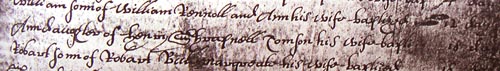 William sonn of William Kennell and Ann his wife baptiz
Ann daughter of henry Tomson his wife bapti
Robart sonn of Robart margreate his wife baptized